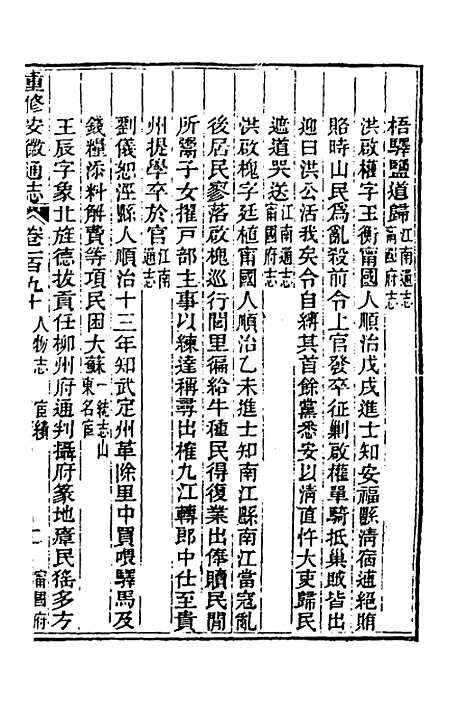 梧驛鹽道歸江南通志甯國府志
洪啟權字王衡甯國人順治戊戌進士知安福縣清宿逋絕賄
賂時山民爲亂殺前令上官發卒征剿啟權單騎抵巢賊皆出
迎曰洪公活我矣令自縛其首餘黨悉安以清直忤大吏歸民
遮道哭送江南通志甯國府志
洪啟槐字廷植甯國人順治乙未進士知南江縣南江當寇亂
後居民寥落啟槐巡行閭里徧給牛種民得復業出俸贖民間
所鬻子女擢戶部主事以練達稱尋出榷九江轉郎中仕至貴
州提學卒於官江南通志
劉儀恕涇縣人順治十三年知武定州革除里中買喂驛馬及
錢糧添料解費等項民困大蘇一統志山東名宦
王辰字象北旌德拔貢任柳州府通判攝府篆地瘴民猺多方
重修安徽通志 卷一百九十 人物志 宦績 二 甯國府